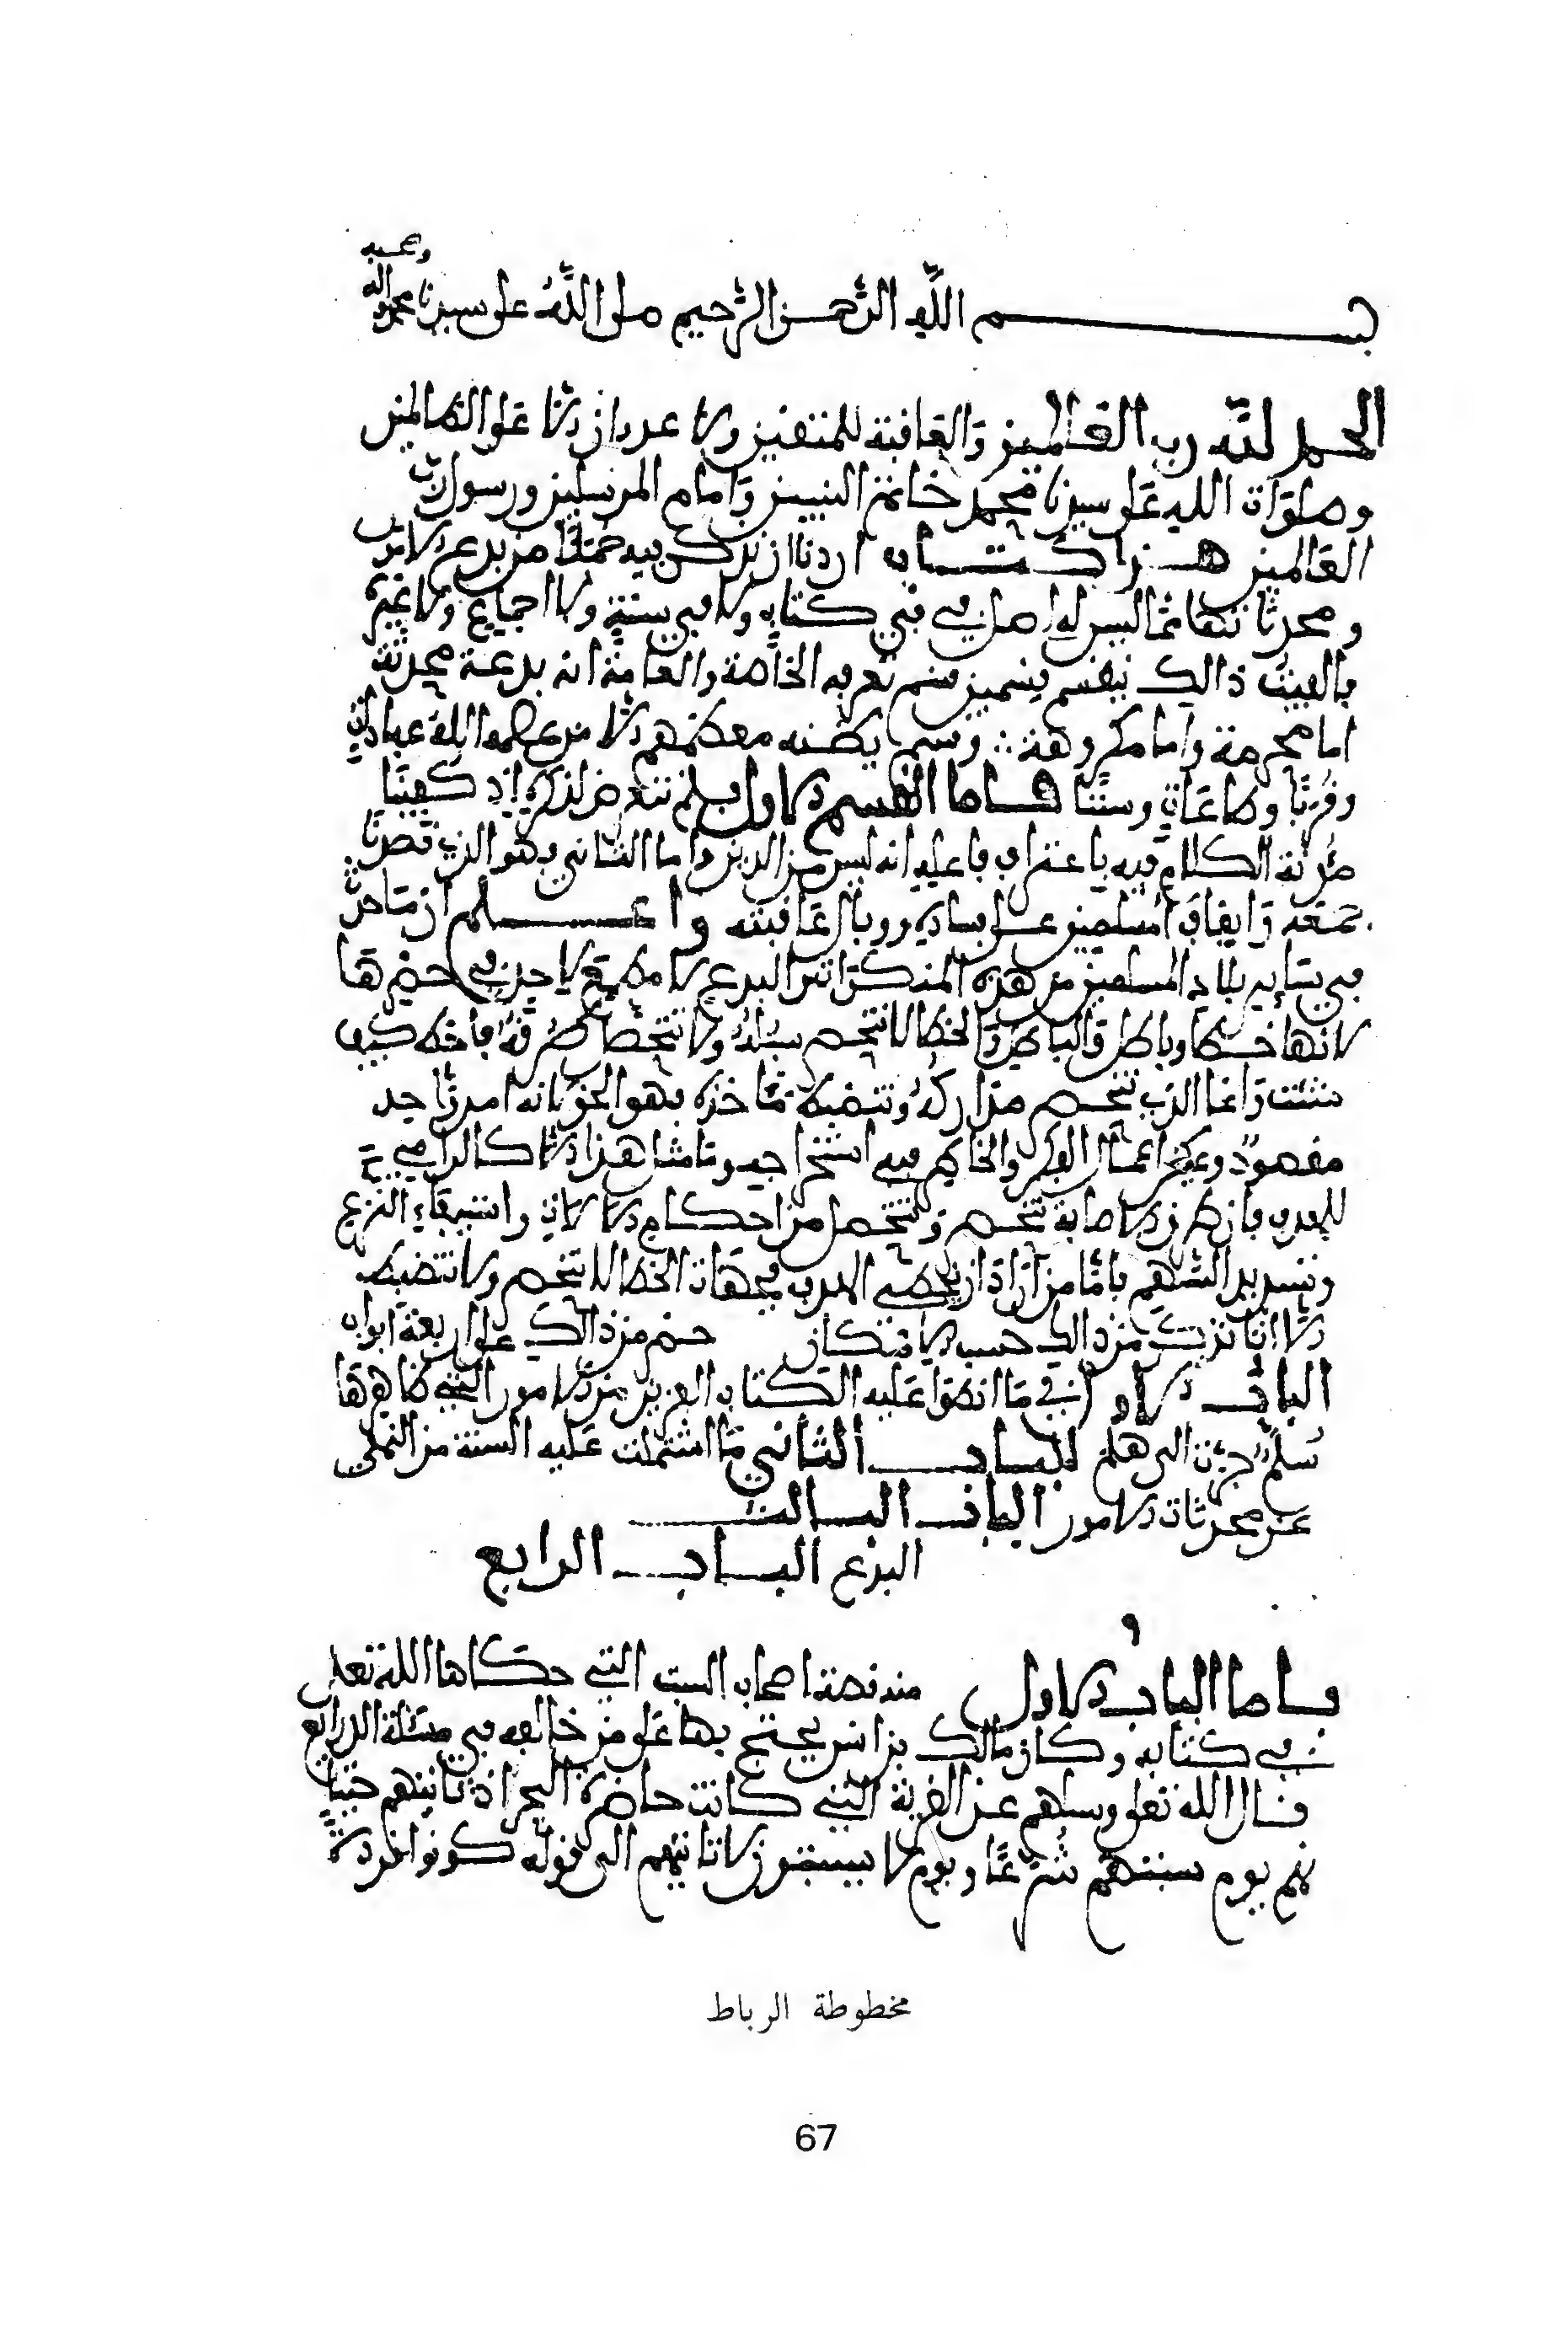 وصحبه
بســـم الله الرحمن الرحيم صلى الله على سيدنا محمد واله
الحمد لله رب العالمين والعاقبة للمتقين ولا عدوان الا على الظالمين
وصلوات الله على سيدنا محمد خاتم النبيين وامام المرسلين ورسول رب
العالمين هـذا كتـاب اردنا ان نذكر فيه جملا من بدع الامور
ومحدثاتها مما ليس له اصل في كتاب ولا في سنة ولا اجماع ولا غيره
فالفيت ذالك ينقسم قسمين قسم تعرفه الخاصة والعامة انه بدعة محدثة
اما محرمة واما مكروهة وقسم يظنه معظمهم الا من عصمه الله عبادات
وقربا وطاعات وسننا فـاما القسم الاول فلم نتعرض لذكره اذ كفينا
مؤنة الكلام فيه باعتراف فاعليه انه ليس من الدين واما الثاني فهو الذي قصدنا
جمعه وايقاف المسلمين على فساده ووبال عاقبته واعـــلم ان ما حدث
في ساير بلاد المسلمين من هذه المنكرات البدع لا مطمع لاحد في حصرها
لانها خطا وباطل والباطل والخطا لا تنحصر سبله ولا تتحصل طرقه فاخط كيف
شئت وانما الذي تنحصر مداركه وتنضبط مئاخذه فهو الحق لانه امر واحد
مقصود ويمكن اعمال الفكر والخاطر في استخراجه وما مثل هذا الا كالرامي
للهدف فان طرق الاصابة تنحصر وتتحصل من احكام الالات واستيفاء النزع
وتسديد السهم فاما من اراد ان يخطى الهدف فجهات الخطا لا تنحصر ولا تنضبط
الا انا نذكر من ذالك حسب الامكان من ذالك على اربعة ابواب
الباب الاول في ما انطوا عليه الكتاب العزيز من الامور التي ظاهرها
سلم جرت الى هلك البـاب الثاني ما اشتملت عليه السنة من النهي
عن محدثات الامور الباب الـثالث
البدع البـاب الرابع
فـاما الباب الاول منه قصة اصحاب السبت التي حكاها الله تعلى
في كتابه وكان مالك بن انس يحتج بها على من خالفه في مسئلة الذرايع
قـال الله تعلى وسلهم عن القرية التي كانت حاضرة البحر اذ تاتيهم حيتا
نهم يوم سبتهم شرعا ويوم لا يسبتون لا تاتيهم الى قوله كونوا قردة
مخطوطة الرباط
67